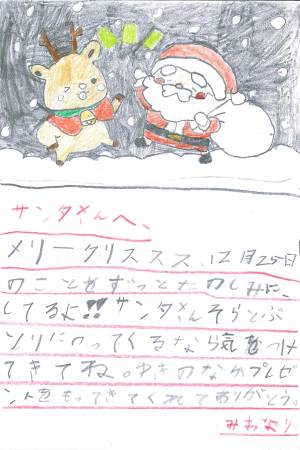 サンタさんへ、
メリークリススス、12月25日
のことをずっとたのしみに、
してるよ!!サンタさんそらとぶ
ソリにのってくるなら気をつけ
てきてね。ゆきのなかプレゼ
ントをもってきてくれてありがとう。
みおより